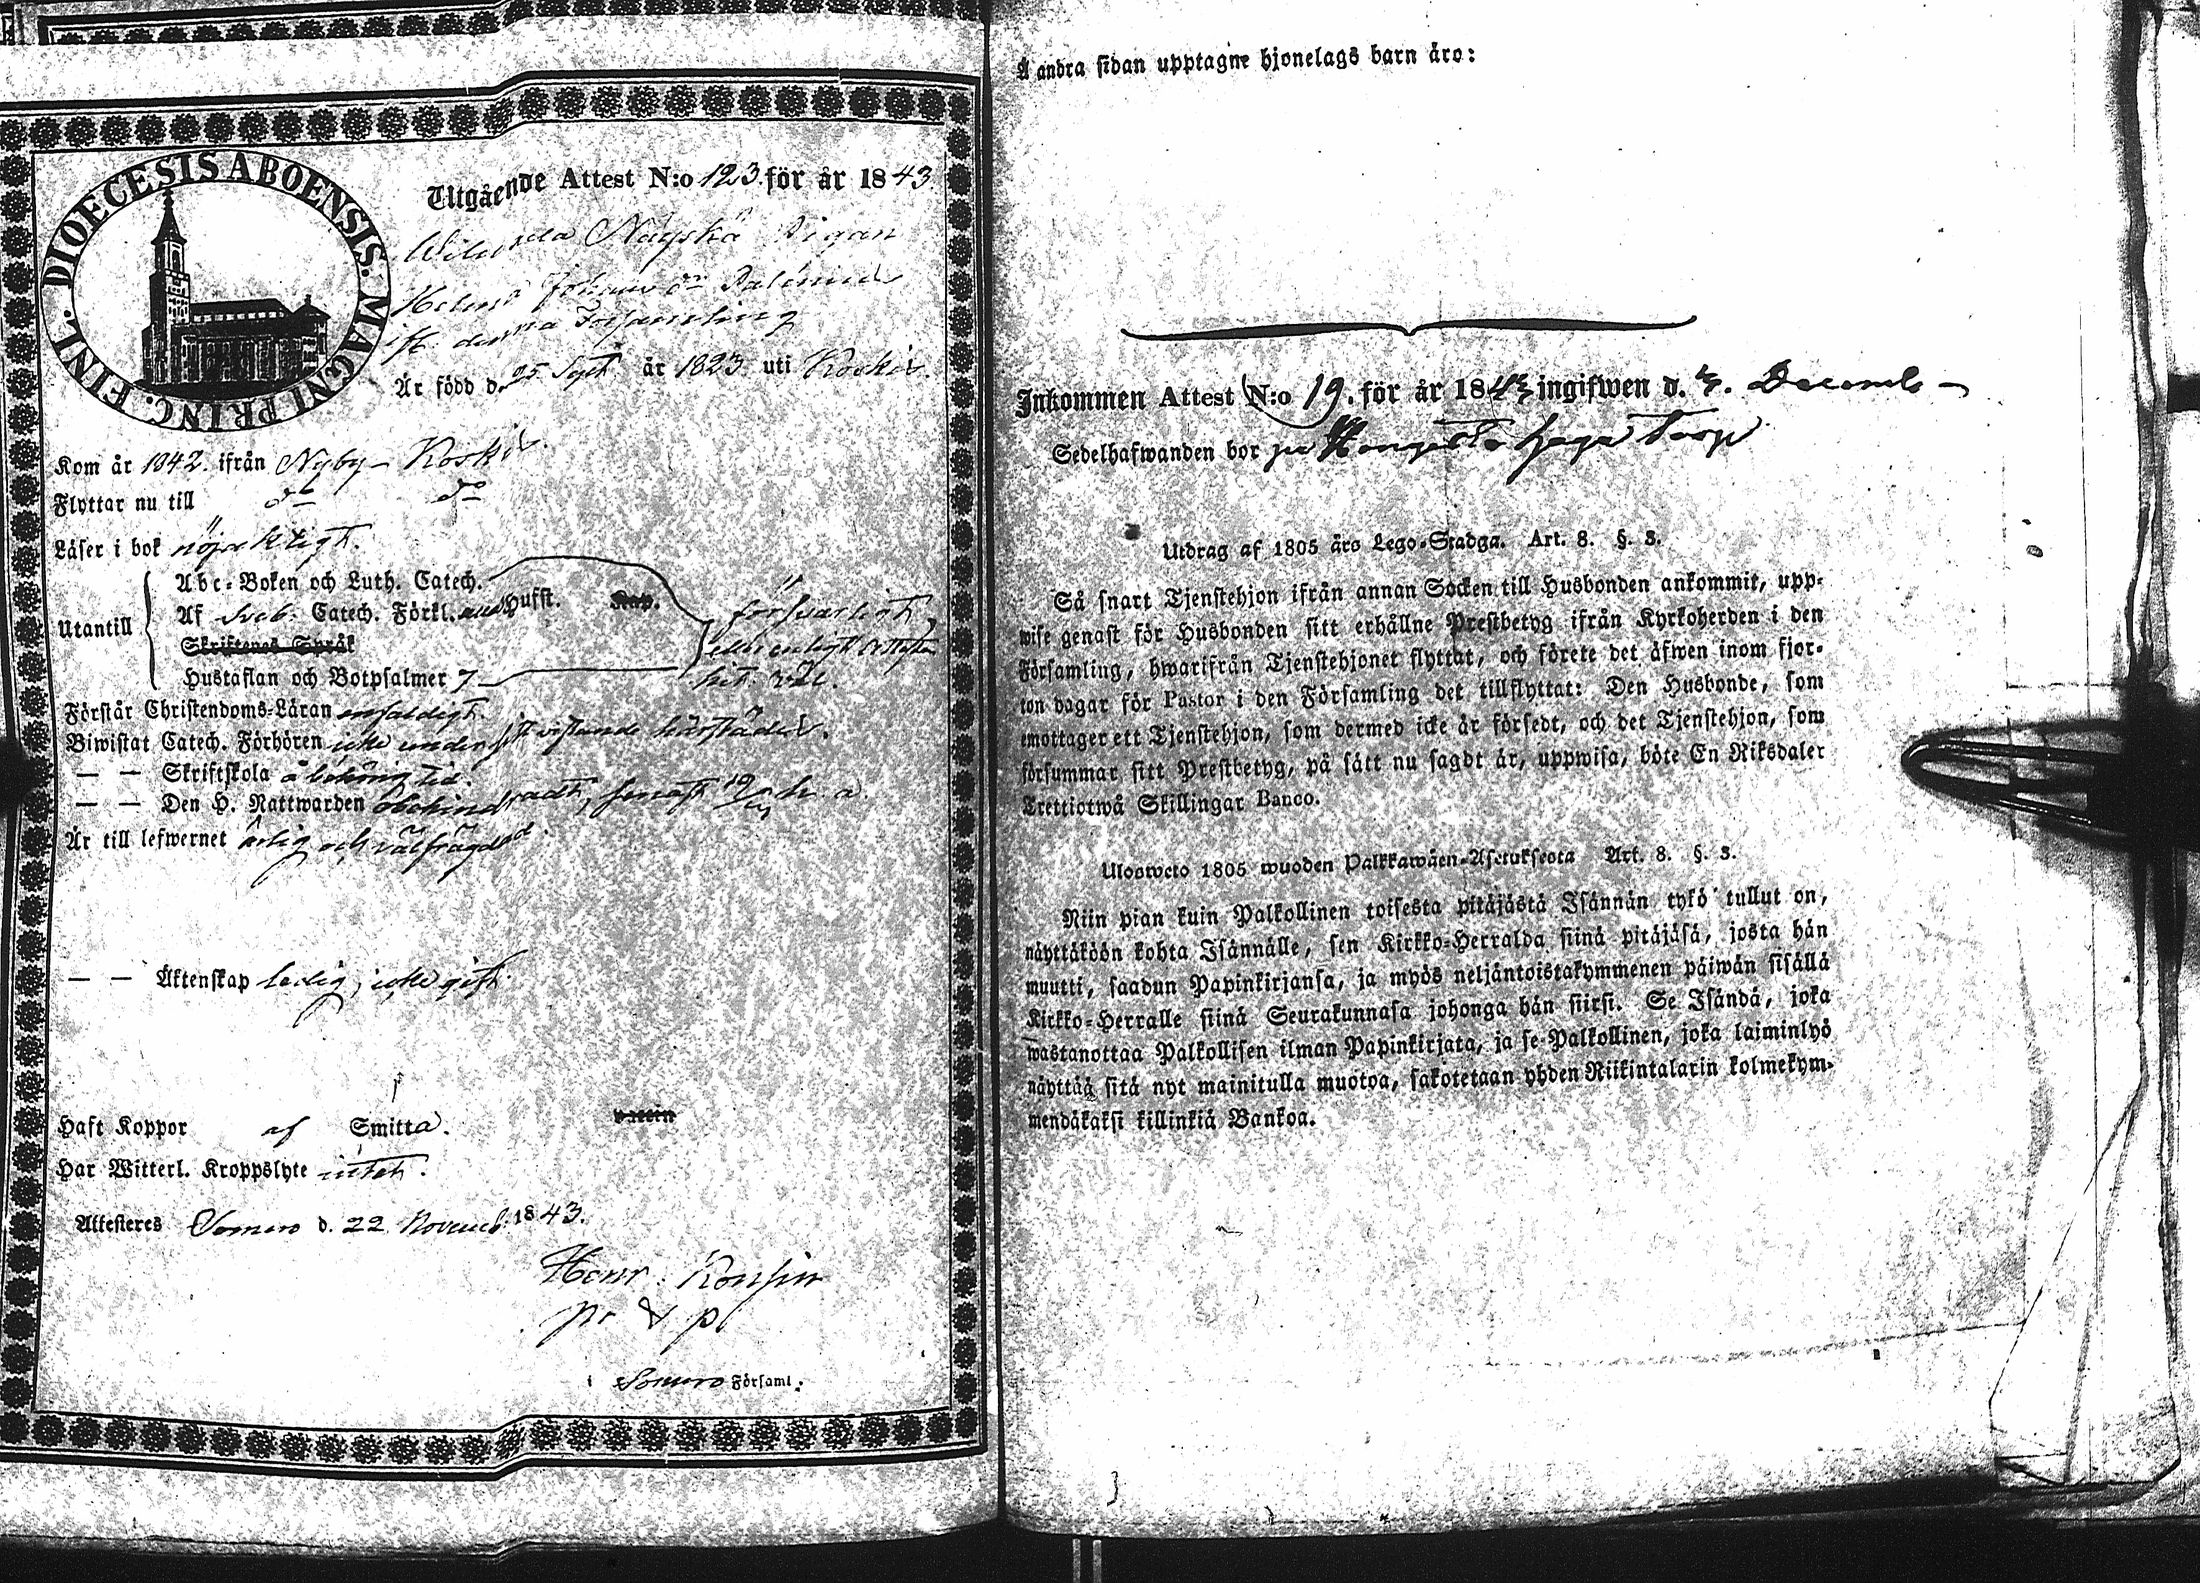 DIOECESIS ABOENSIS. MAGNI PRINC. FINL.
Utgående Attest N:o 123 för år 1843.
Pigan
Helena Johans d:r
denna Församling
Är född d. 25 Sept år 1823 uti Koskis.
Kom år 1842. ifrån Nyby - Koskis.
Flyttar nu till do do
Läser i bok nöjaktigt.
Abc-Boken och Luth. Catech.
Utantill Af Sveb. Catech. Förkl. Hufst. Kap. försvarligt
Skriftenes Språk
Hustaflan och Botpsalmer 7 hit. väl.
Förstår Christendoms-Läran enfaldigt.
Biwistat Catech. Förhören icke under sitt vistande härstädes.
— — Skriftskola å behörig tid.
— — Den H. Nattwarden obehindradt, senast h. a.
Är till lefwernet ärlig och välfrägdad.
— — Äktenskap ledig, icke gift.
Haft Koppor af Smitta. vaccin
Har Witterl. Kroppslyte intet.
Attesteres Somero d. 22 Novemb. 1843.
Henr. Konsin
pr & p
i Somero Församl.
Å andra sidan upptagne hjonelags barn äro:
Inkommen Attest N:o 19. för år 1843 ingifwen d. Decemb
Sedelhafwanden bor på Torp
Utdrag af 1805 års Lego-Stadga. Art. 8. §. 3.
Så snart Tjenstehjon ifrån annan Socken till Husbonden ankommit, upp-
wise genast för Husbonden sitt erhållne Prestbetyg ifrån Kyrkoherden i den
Församling, hwarifrån Tjenstehjonet flyttat, och förete det äfwen inom fjor-
ton dagar för Pastor i den Församling det tillflyttat: Den Husbonde, som
emottager ett Tjenstehjon, som dermed icke är försedt, och det Tjenstehjon, som
försummar sitt Prestbetyg, på sätt nu sagdt är, uppwisa, böte En Riksdaler
Trettiotwå Skillingar Banco.
Ulosweto 1805 wuoden Palkkawäen-Asetuksesta Art. 8. §. 3.
Niin pian kuin Palkollinen toisesta pitäjästä Isännän tykö tullut on,
näyttäköön kohta Isännälle, sen Kirkko-Herralda siinä pitäjäsä, josta hän
muutti, saadun Papinkirjansa, ja myös neljäntoistakymmenen päiwän sisällä
Kirkko-Herralle siinä Seurakunnasa johonga hän siirsi. Se Isändä, joka
wastanottaa Palkollisen ilman Papinkirjata, ja se Palkollinen, joka laiminlyö
näyttää sitä nyt mainitulla muotoa, sakotetaan yhden Riikintalarin kolmekym-
mendäkaksi killinkiä Bankoa.